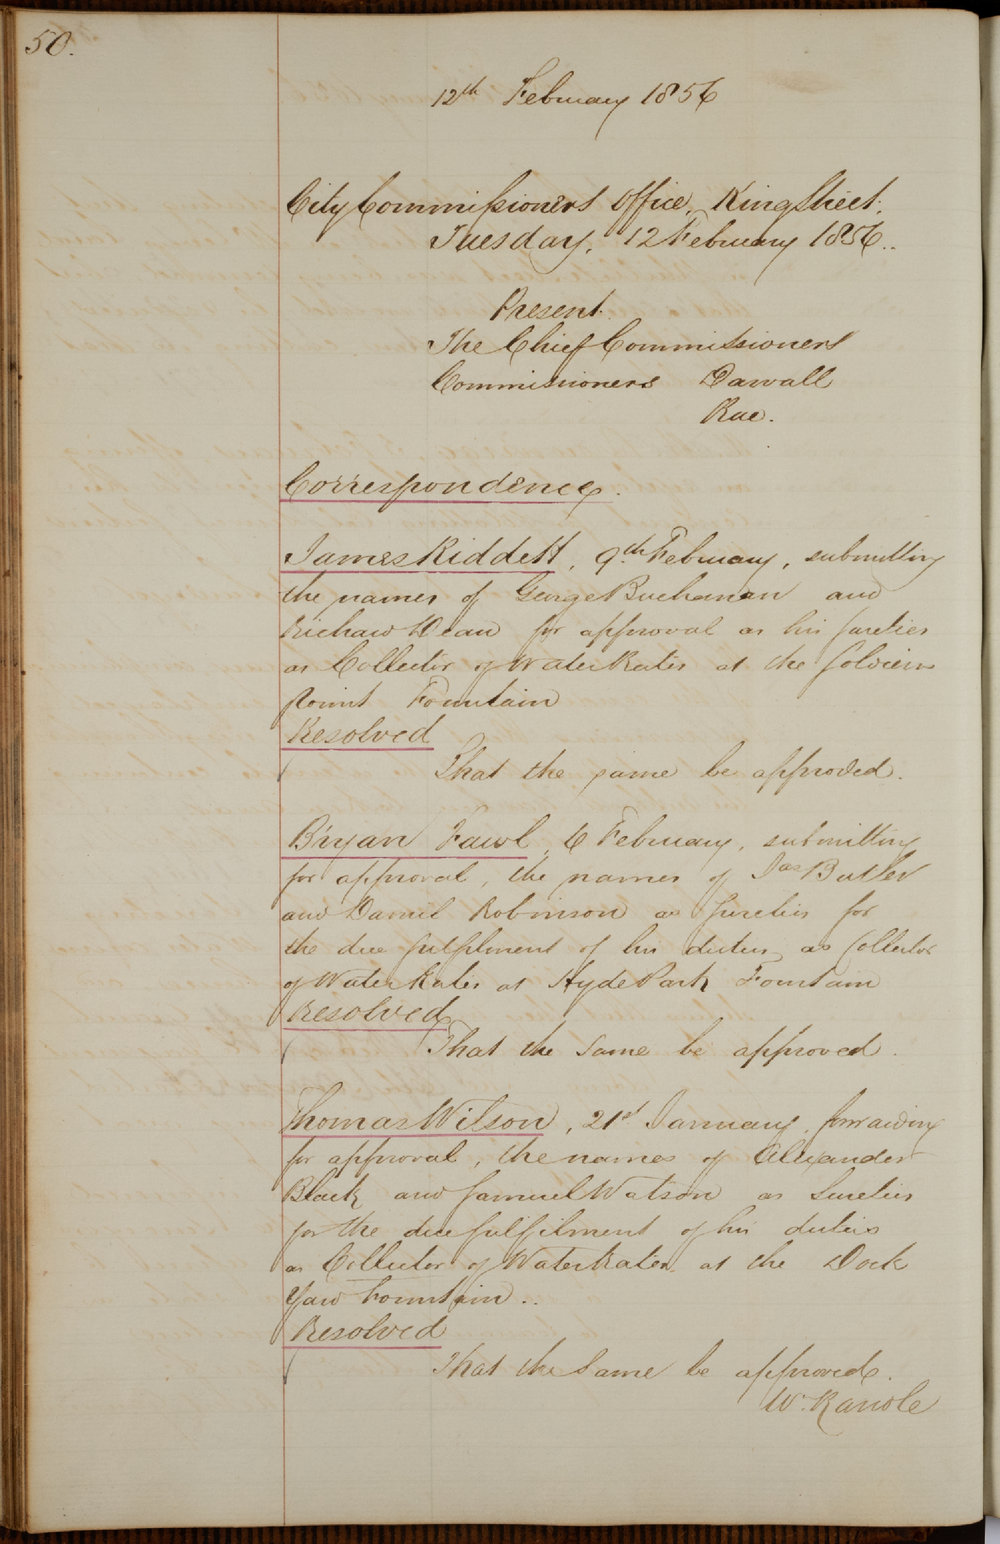 50.
12th February 1856
City Commissioners Office, King Street.
Tuesday, 12 February 1856..
Present.
The Chief Commissioners
Commissioners Darvall
Rae.
Correspondence.
James Riddett, 9th February, submitting
the names of George Buchanan and
Richard Dean for approval as his sureties
as Collector of Water Rates at the Soldiers
point Fountain
Resolved
That the same be approved.
Bryan Fawl, 6 February, submitting
for approval, the names of Jas Butler
and Daniel Robinson as sureties for
the due fulfilment of his duties as Collector
of Water Rates at Hyde Park Fountain
Resolved
That the same be approved.
Thomas Wilson, 21st January, forwarding
for approval, the names of Alexander
Black and Samuel Watson as Sureties
for the due fulfilment of his duties
as Collector of Water Rates at the Dock
Yard Fountain..
Resolved
That the Same be approved.
W.